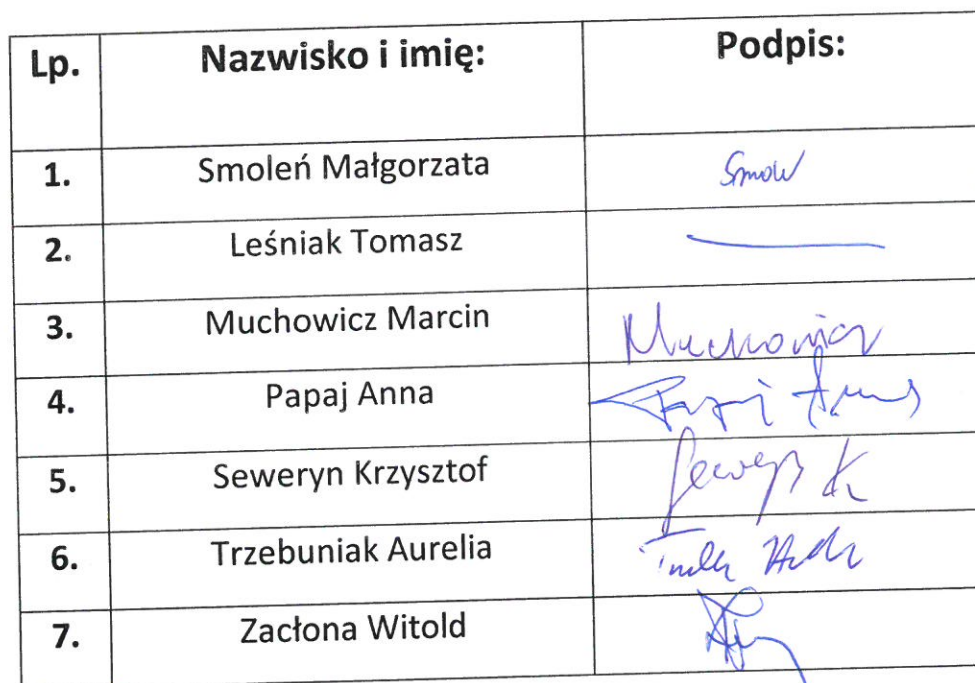 Lp. Nazwisko i imię: Podpis:
1. Smoleń Małgorzata
2. Leśniak Tomasz
3. Muchowicz Marcin Muchowicz
4. Papaj Anna
5. Seweryn Krzysztof
6. Trzebuniak Aurelia
7. Zacłona Witold